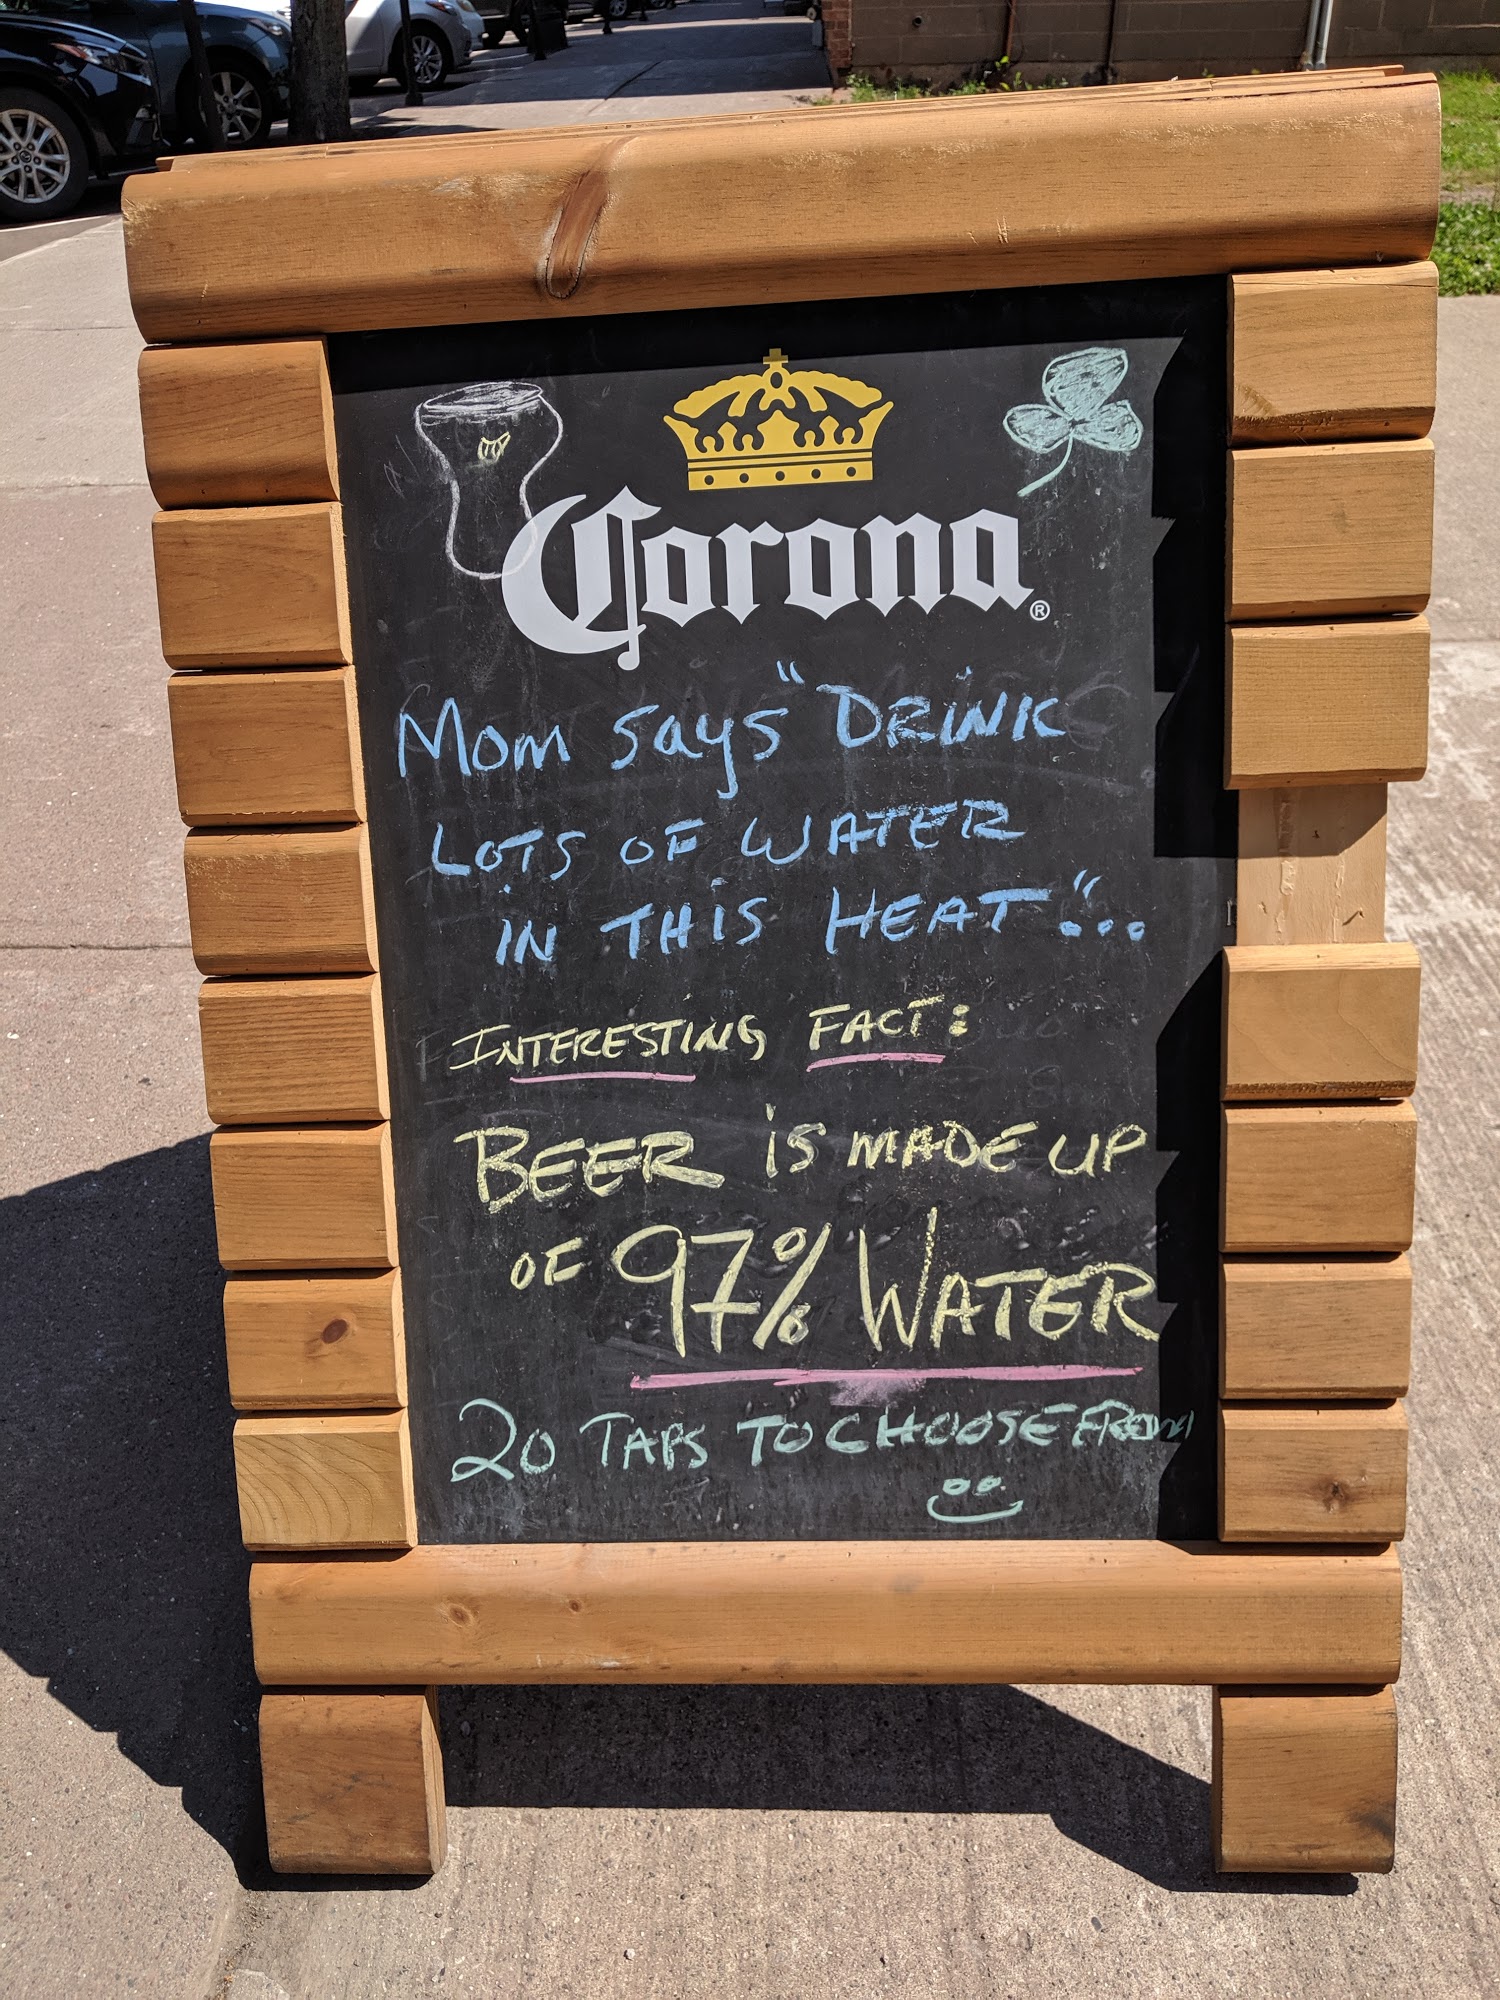 Corona®
Mom says "DRINK
LOTS OF WATER
IN THIS HEAT"...
INTERESTING FACT:
BEER IS MADE UP
OF 97% WATER
20 TAPS TO CHOOSE FROM